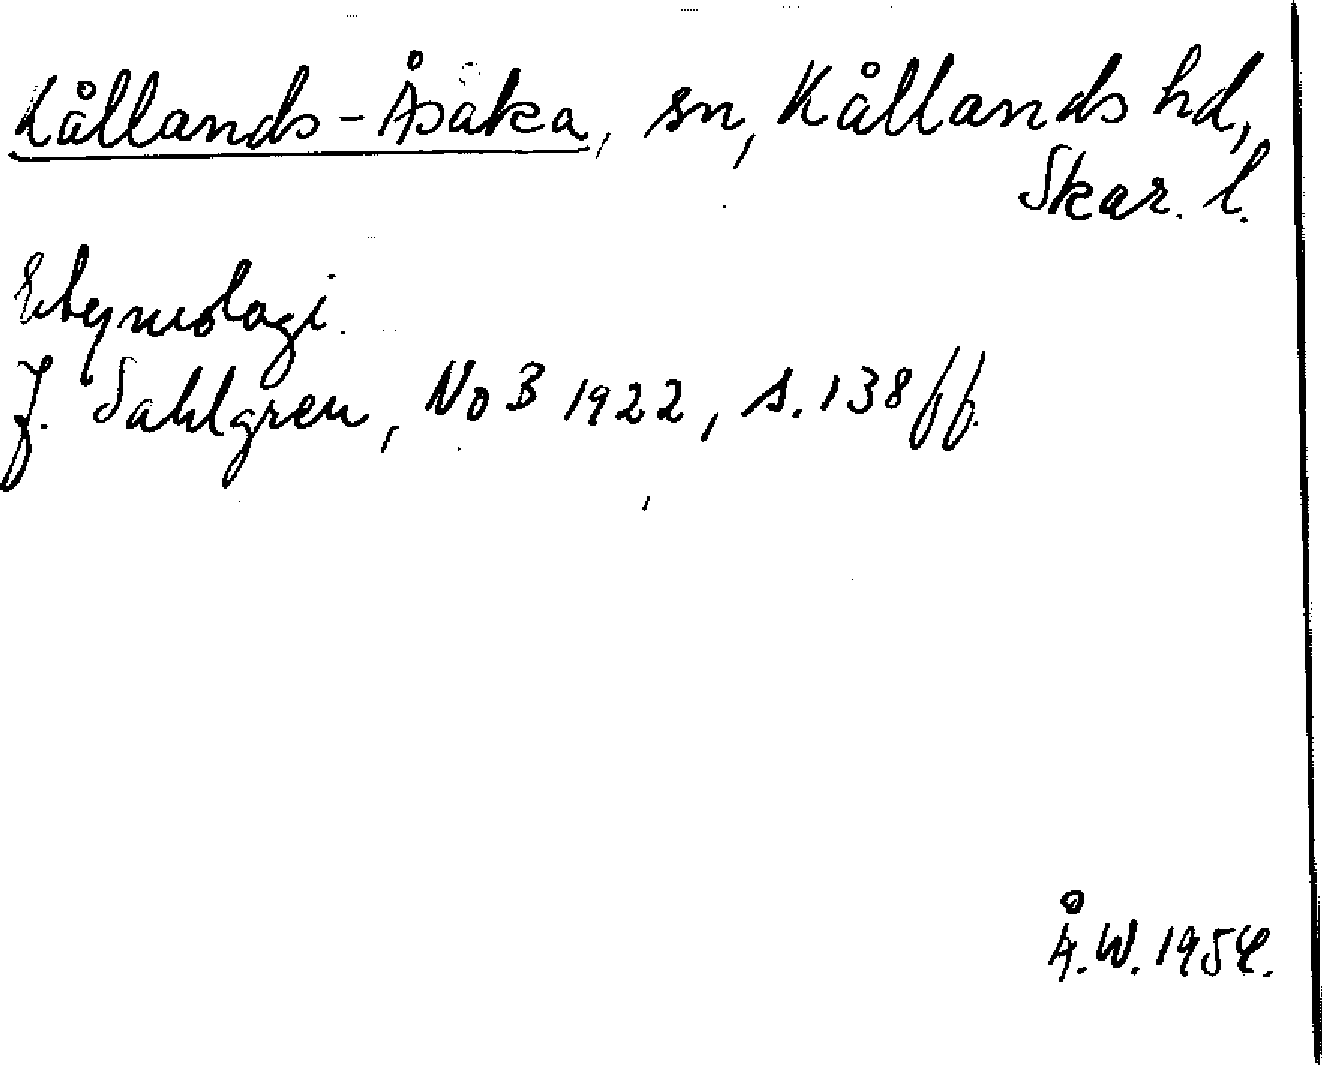 Kållands-Åsaka, sn, Kållands hd,
Skar. l.
Etymologi.
J. Sahlgren, NoB 1922, s. 138 ff.
Å.W. 1954.